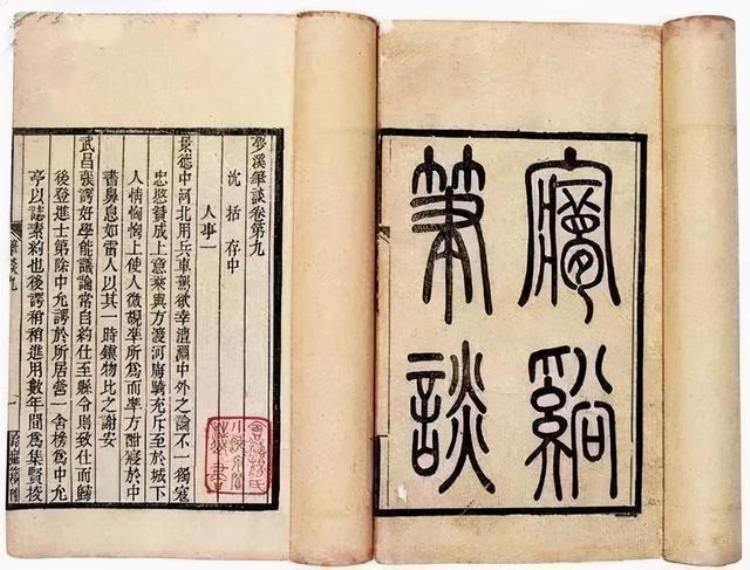 㝱谿
筆談
夢溪筆談卷第九
沈括存中
人事一
景德中河北用兵車駕欲幸澶淵中外之論不一獨寇
忠愍贊成上意乘輿方渡河虜騎充斥至於城下
人情恟恟上使人微覘準所爲而準方酣寢於中
書鼻息如雷人以其一時鎭物比之謝安
武昌張諤好學能議論常自約仕至縣令則致仕而歸
後登進士第除中允諤於所居營一舍榜爲中允
亭以誌素約也後諤稍稍進用數年間爲集賢挍
筆談九
一